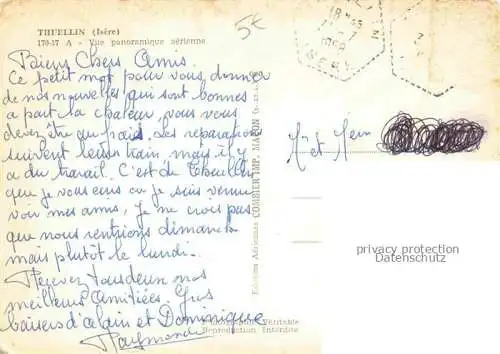 THUELLIN (Isère)
170-37 A - Vue panoramique aérienne
5€
Biens Chers Amis.
Ce petit mot pour vous donner
de nos nouvelles qui sont bonnes
a part la chaleur, vous vous
devez être au frais. Les réparations
suivent leur train, mais il y
a du travail. C'est de Thuellin
que je vous écris où je suis venue
voir mes amis, je ne crois pas
que nous rentrions dimanche
mais plutôt le lundi.
Recevez tous deux nos
meilleures Amitiées. Gros
baisers d'alain et Dominique
Raymonde
Editions Aériennes COMBIER IMP. MACON
Mr et Mme
privacy protection
Datenschutz
Photographie Véritable
Reproduction Interdite